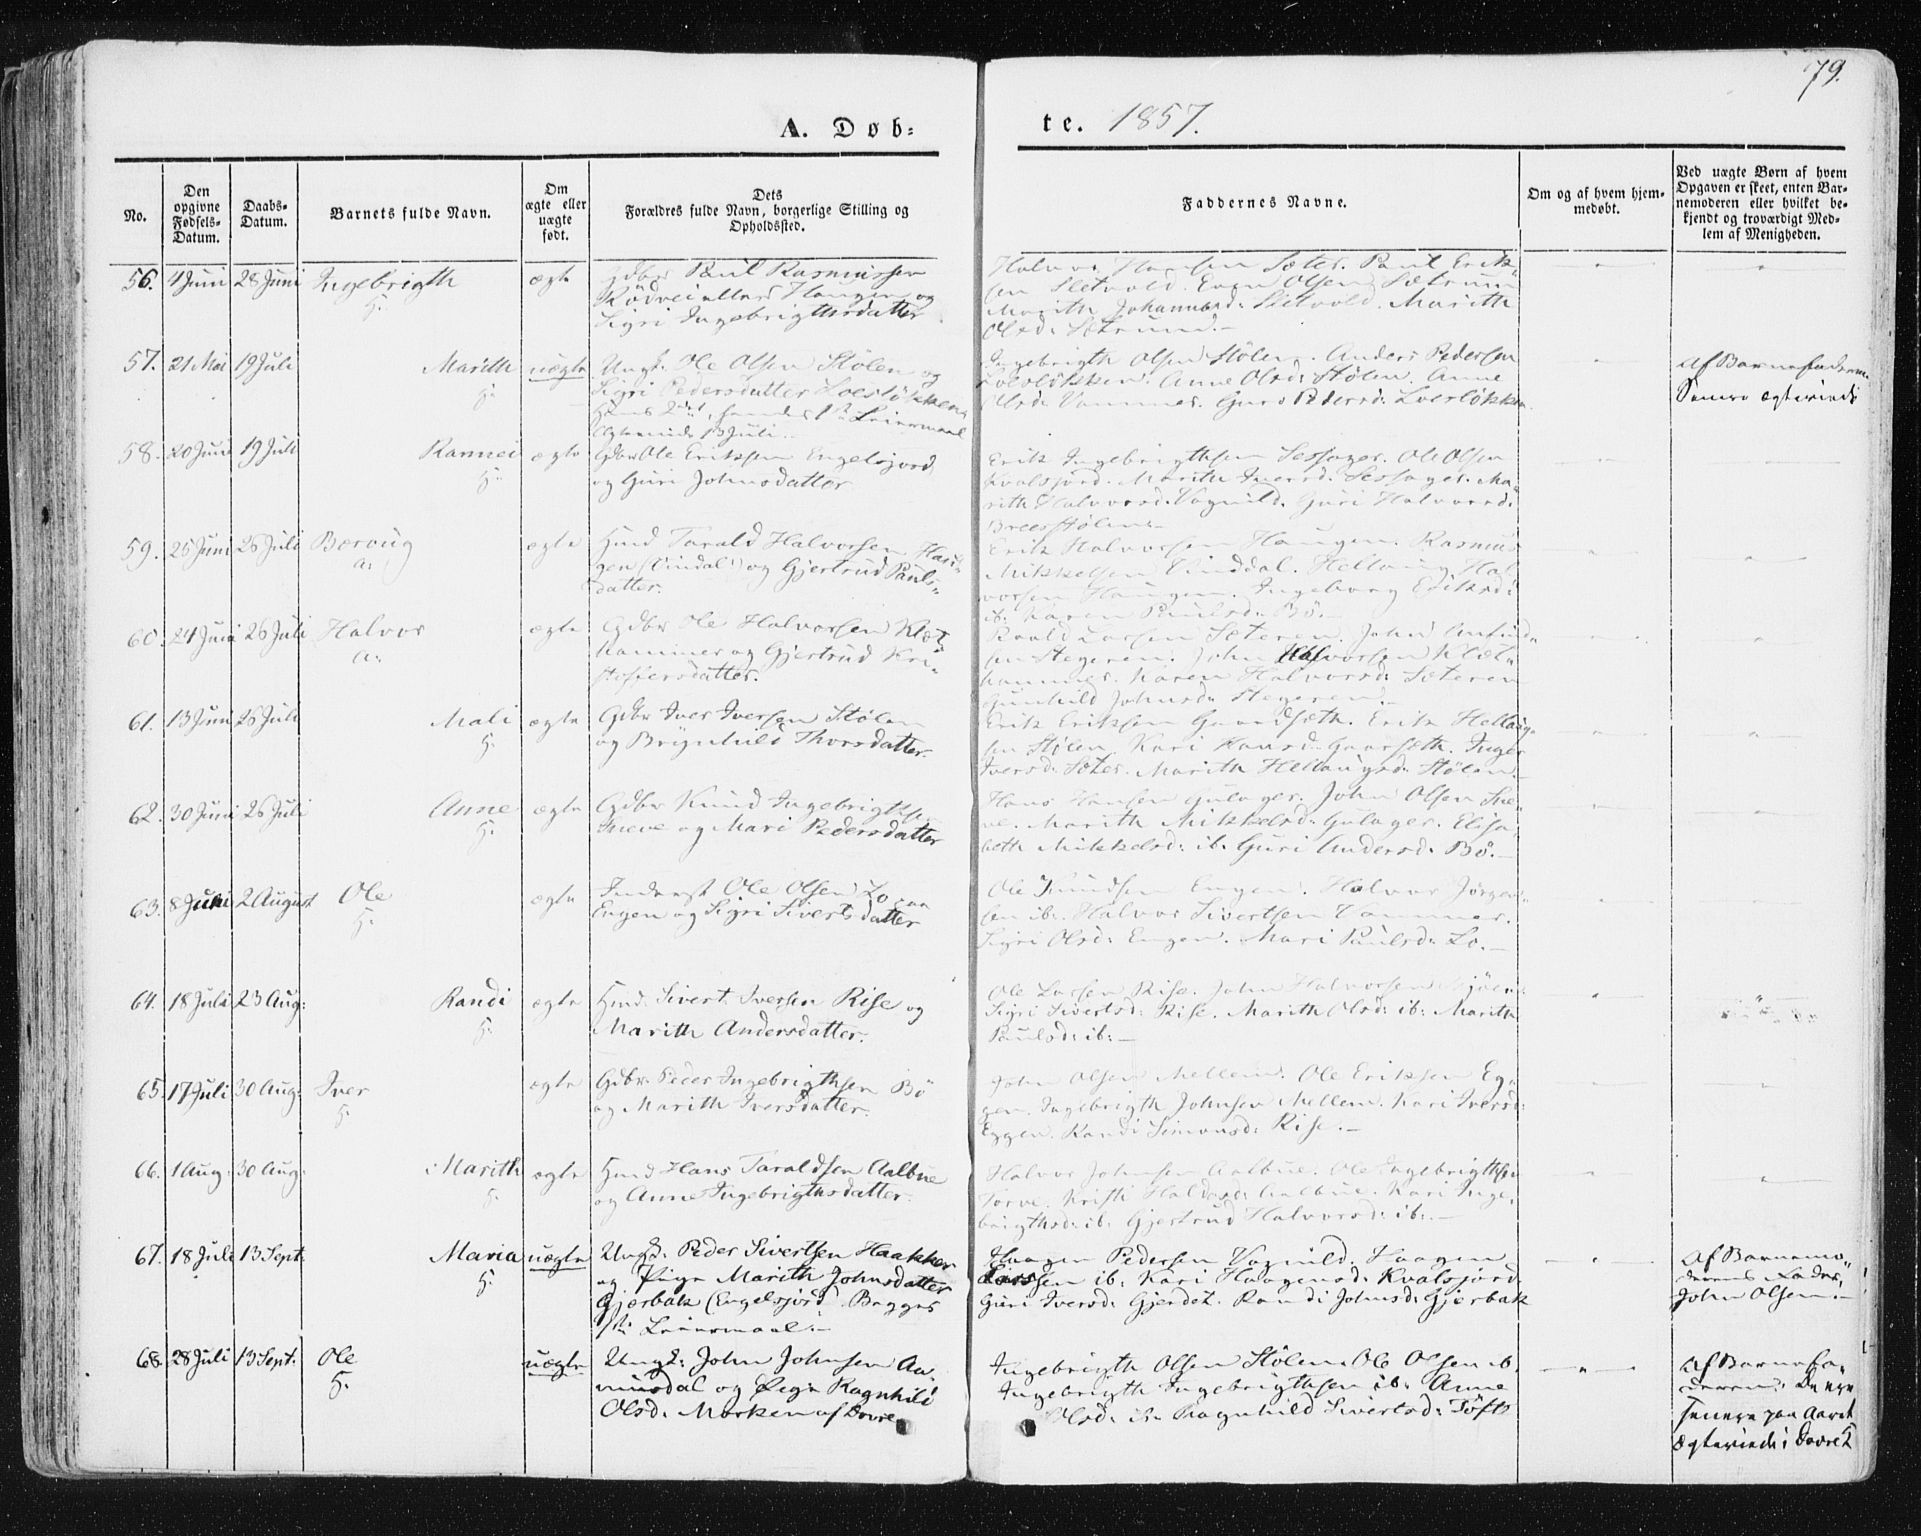 79.
A. Døb-
te. 1857.
No.
Den opgivne Fødsels-Datum.
Daabs-Datum.
Barnets fulde Navn.
Om ægte eller uægte født.
Dets
Forældres fulde Navn, borgerlige Stilling og
Opholdssted.
Faddernes Navne.
Om og af hvem hjem-
medøbt.
Ved uægte Børn af hvem
Opgaven er skeet, enten Bar-
nemoderen eller hvilket be-
kjendt og troværdigt Med-
lem af Menigheden.
56. 4 Juni 28 Juni Ingebrigth ægte Gdbr Paul Rasmussen
Haugen og
Sigri Ingebrigthsdatter
Halvor Hansen Sæter. Paul Erik-
sen Sletvold. Even Olsen Sætrum
Marith Johannesd: Sletvold. Marith
Olsd: Sætrum.
57. 21 Mai 19 Juli Marith uægte Ungk. Ole Olsen Stølen og
Sigri Pedersdatter Loesløkken
Hans 2det, hendes 1ste Leiermaal
13 Juli.
Ingebrigth Olsen Stølen. Anders Pedersen
Loesløkken. Anne Olsd: Stølen. Anne
Olsd: Vammer. Guro Pedersd: Loesløkken
Af Barnefaderen.
Senere Ægteviede
58. 20 Juni 19 Juli Rannei ægte Gdbr Ole Eriksen Engelsjord
og Guri Johnsdatter
Erik Ingebrigthsen Sessager. Ole Olsen
Kvalsjord. Marith Iversd: Sessager. Ma-
rith Halvorsd: Vognild. Guri Halvorsd:
Breesstølen.
59. 25 Juni 26 Juli Beroug ægte Huusmd Tarald Halvorsen Hau-
gen (Vindal) og Gjertrud Pauls-
datter.
Erik Halvorsen Haugen. Rasmus
Mikkelsen Vinddal. Hellaug Hal-
vorsen Haugen. Ingeborg Eriksd:
ib. Karen Paulsd: Bø.
60. 24 Juni 26 Juli Halvor ægte Gdbr Ole Halvorsen Klæt-
hammer og Gjertrud Kri-
stoffersdatter.
Roald Larsen Sæteren. John Amund-
sen Stegeren. John Halvorsen Klæt-
hammer. Karen Halvorsd: Sæteren
Gunhild Johnsd: Stegeren.
61. 13 Juni 26 Juli Mali ægte Gdbr Iver Iversen Stølen
og Brynhild Thorsdatter.
Erik Eriksen Gaardseth. Erik Hellaug-
sen Stølen. Kari Hansd: Gaarseth. Inger
Iversd: Sæter. Marith Hellaugsd: Stølen.
62. 30 Juni 26 Juli Anne ægte Gdbr Knud Ingebrigthsen
Sneve og Mari Pedersdatter
Hans Hansen Gulager. John Olsen Sne-
ve. Marith Mikkelsd: Gulager. Elisa-
beth Mikkelsd: ib. Guri Andersd: Bø.
63. 8 Juni 2 August Ole ægte Inderst Ole Olsen Lo
Engen og Sigri Sivertsdatter
Ole Knudsen Engen. Halvor Jørgen-
sen ib: Halvor Sivertsen Vammer.
Sigri Olsd: Engen. Mari Paulsd: Lo.
64. 18 Juli 23 Aug: Randi ægte Hmd. Sivert Iversen Rise og
Marith Andersdatter.
Ole Larsen Rise. John Halvorsen
Sigri Sivertsd: Rise. Marith Olsd: ib: Marith
Paulsd: ib:
65. 17 Juli 30 Aug: Iver ægte Gdbr. Peder Ingebrigthsen Bø
og Marith Iversdatter.
John Olsen Mellem. Ole Eriksen Eg-
gen. Ingebrigth Johnsen Mellem. Kari Iversd:
Eggen. Randi Simonsd: Rise.
66. 1 Aug. 30 Aug: Marith ægte Hmd Hans Taraldsen Aalbue
og Anne Ingebrigthsdatter.
Halvor Johnsen Aalbue. Ole Ingebrigthsen
Torve. Kristi Haldosd: Aalbue. Kari Inge-
brigthsd: ib. Gjertrud Halvorsd: ib:
67. 18 Juli 13 Sept: Maria uægte Ungk: Peder Sivertsen Haakker
og Pige Marith Johnsdatter
Gjerbak (Engelsjord). Begges
1ste Leiermaal.
Haagen Pedersen Vognild. Haagen
Larssen ib: Kari Haagensd: Kvalsjord.
Guri Iversd: Gjerdet. Randi Johnsd: Gjerbak
Af Barnemo-
derens Fader,
John Olsen.
68. 28 Juli 13 Sept: Ole uægte Ungk: John Johnsen Aa-
mundal og Pige Ragnhild
Olsd: Morken af Dovre
Ingebrigth Olsen Stølen. Ole Olsen ib.
Ingebrigth Ingebrigthsen ib: Anne
Olsd: ib: Ragnhild Sivertsd: Tøfte
Af Barnefa-
deren. De ere
senere paa Aaret
Ægteviede i Dovre